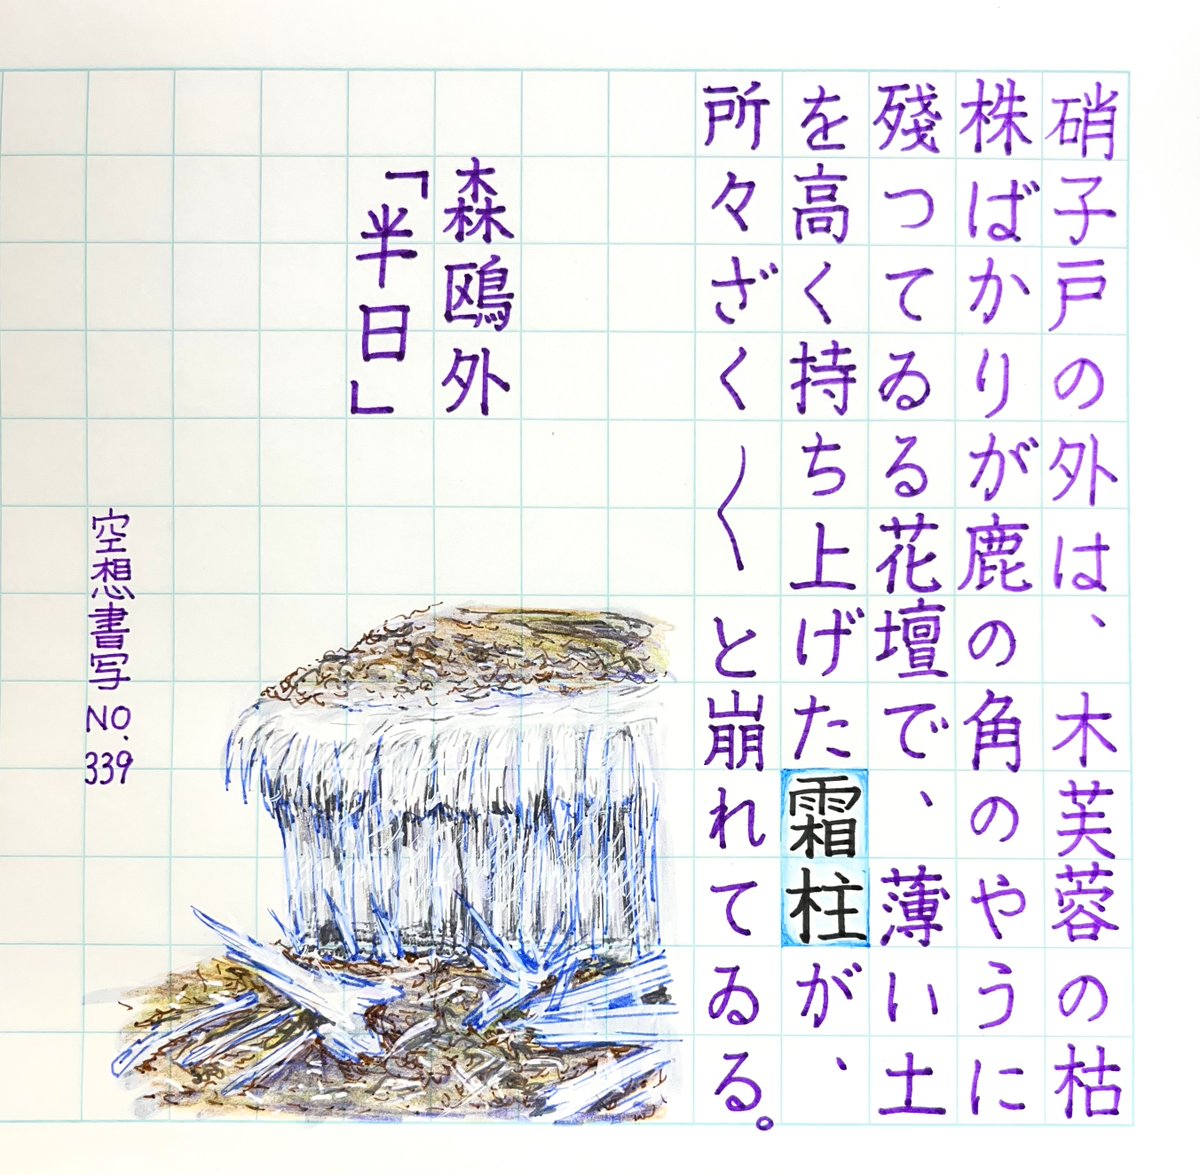 硝子戸の外は、木芙蓉の枯
株ばかりが鹿の角のやうに
殘つてゐる花壇で、薄い土
を高く持ち上げた霜柱が、
所々ざく〱と崩れてゐる。
森鷗外
「半日」
空想書写NO.339